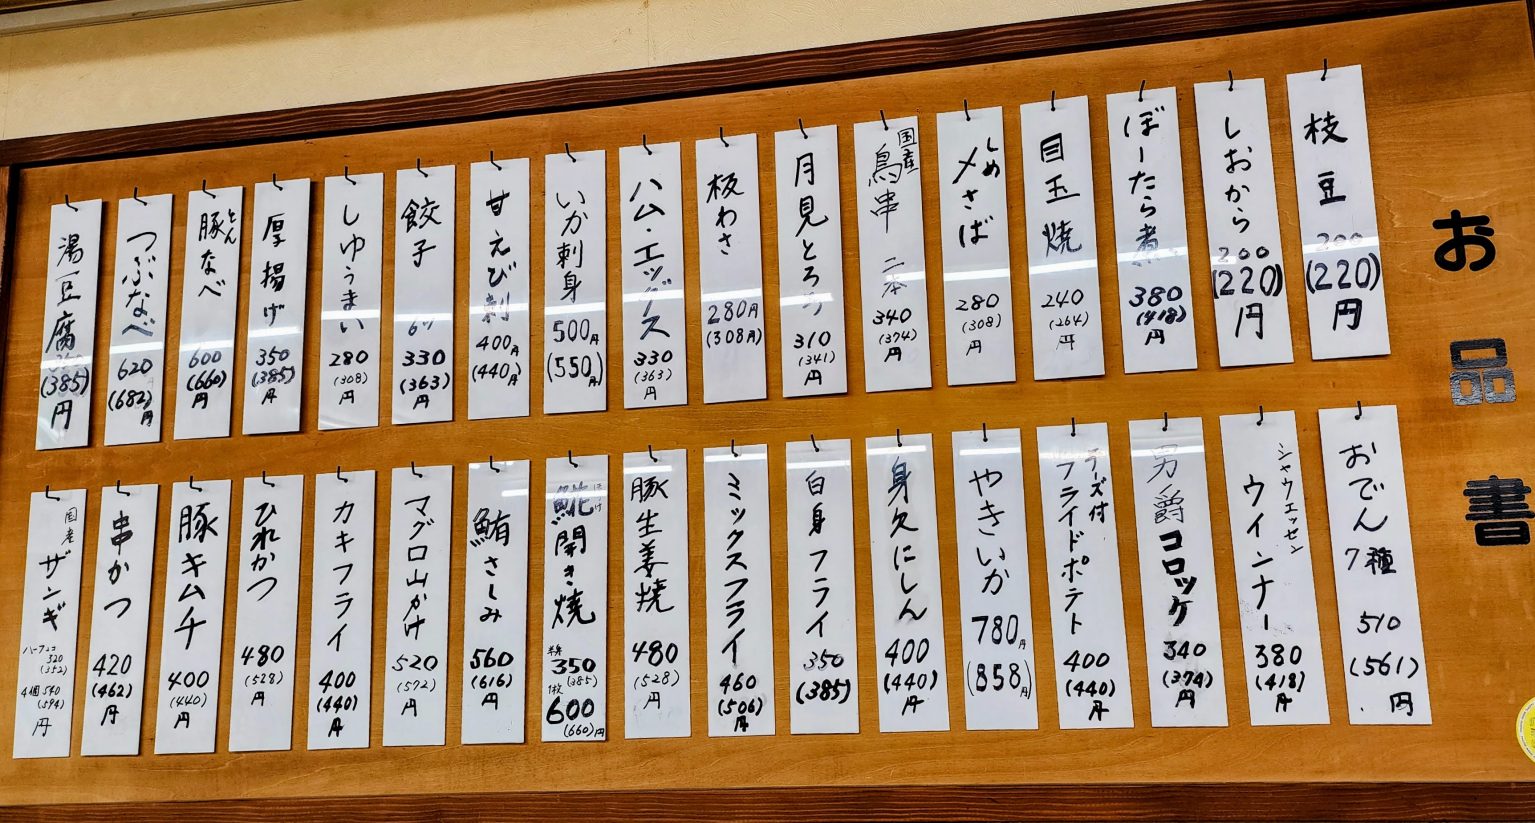 お品書
枝豆 200 (220) 円
しおから 200 (220) 円
ぼーたら煮 380 (418) 円
目玉焼 240 (264) 円
しめ 〆さば 280 (308) 円
国産 鳥串 二本 340 (374) 円
月見とろろ 310 (341) 円
板わさ 280円 (308円)
ハム・エッグス 330 (363) 円
いか刺身 500円 (550円)
甘えび刺 400円 (440円)
餃子 6ケ 330 (363) 円
しゅうまい 280 (308) 円
厚揚げ 350 (385) 円
とん 豚なべ 600 (660) 円
つぶなべ 620 (682) 円
湯豆腐 (385) 円
おでん 7種 510 (561) 円
シャウエッセン ウインナー 380 (418) 円
男爵コロッケ 340 (374) 円
チーズ付 フライドポテト 400 (440) 円
やきいか 780円 (858円)
身欠にしん 400 (440) 円
白身フライ 350 (385)
ミックスフライ 460 (506) 円
豚生姜焼 480 (528) 円
開き焼 半身 350 (385) 1枚 600 (660)円
鮪さしみ 560 (616) 円
マグロ山かけ 520 (572) 円
カキフライ 400 (440) 円
ひれかつ 480 (528) 円
豚キムチ 400 (440) 円
串かつ 420 (462) 円
国産 ザンギ 320 (352) 4個 540 (594) 円